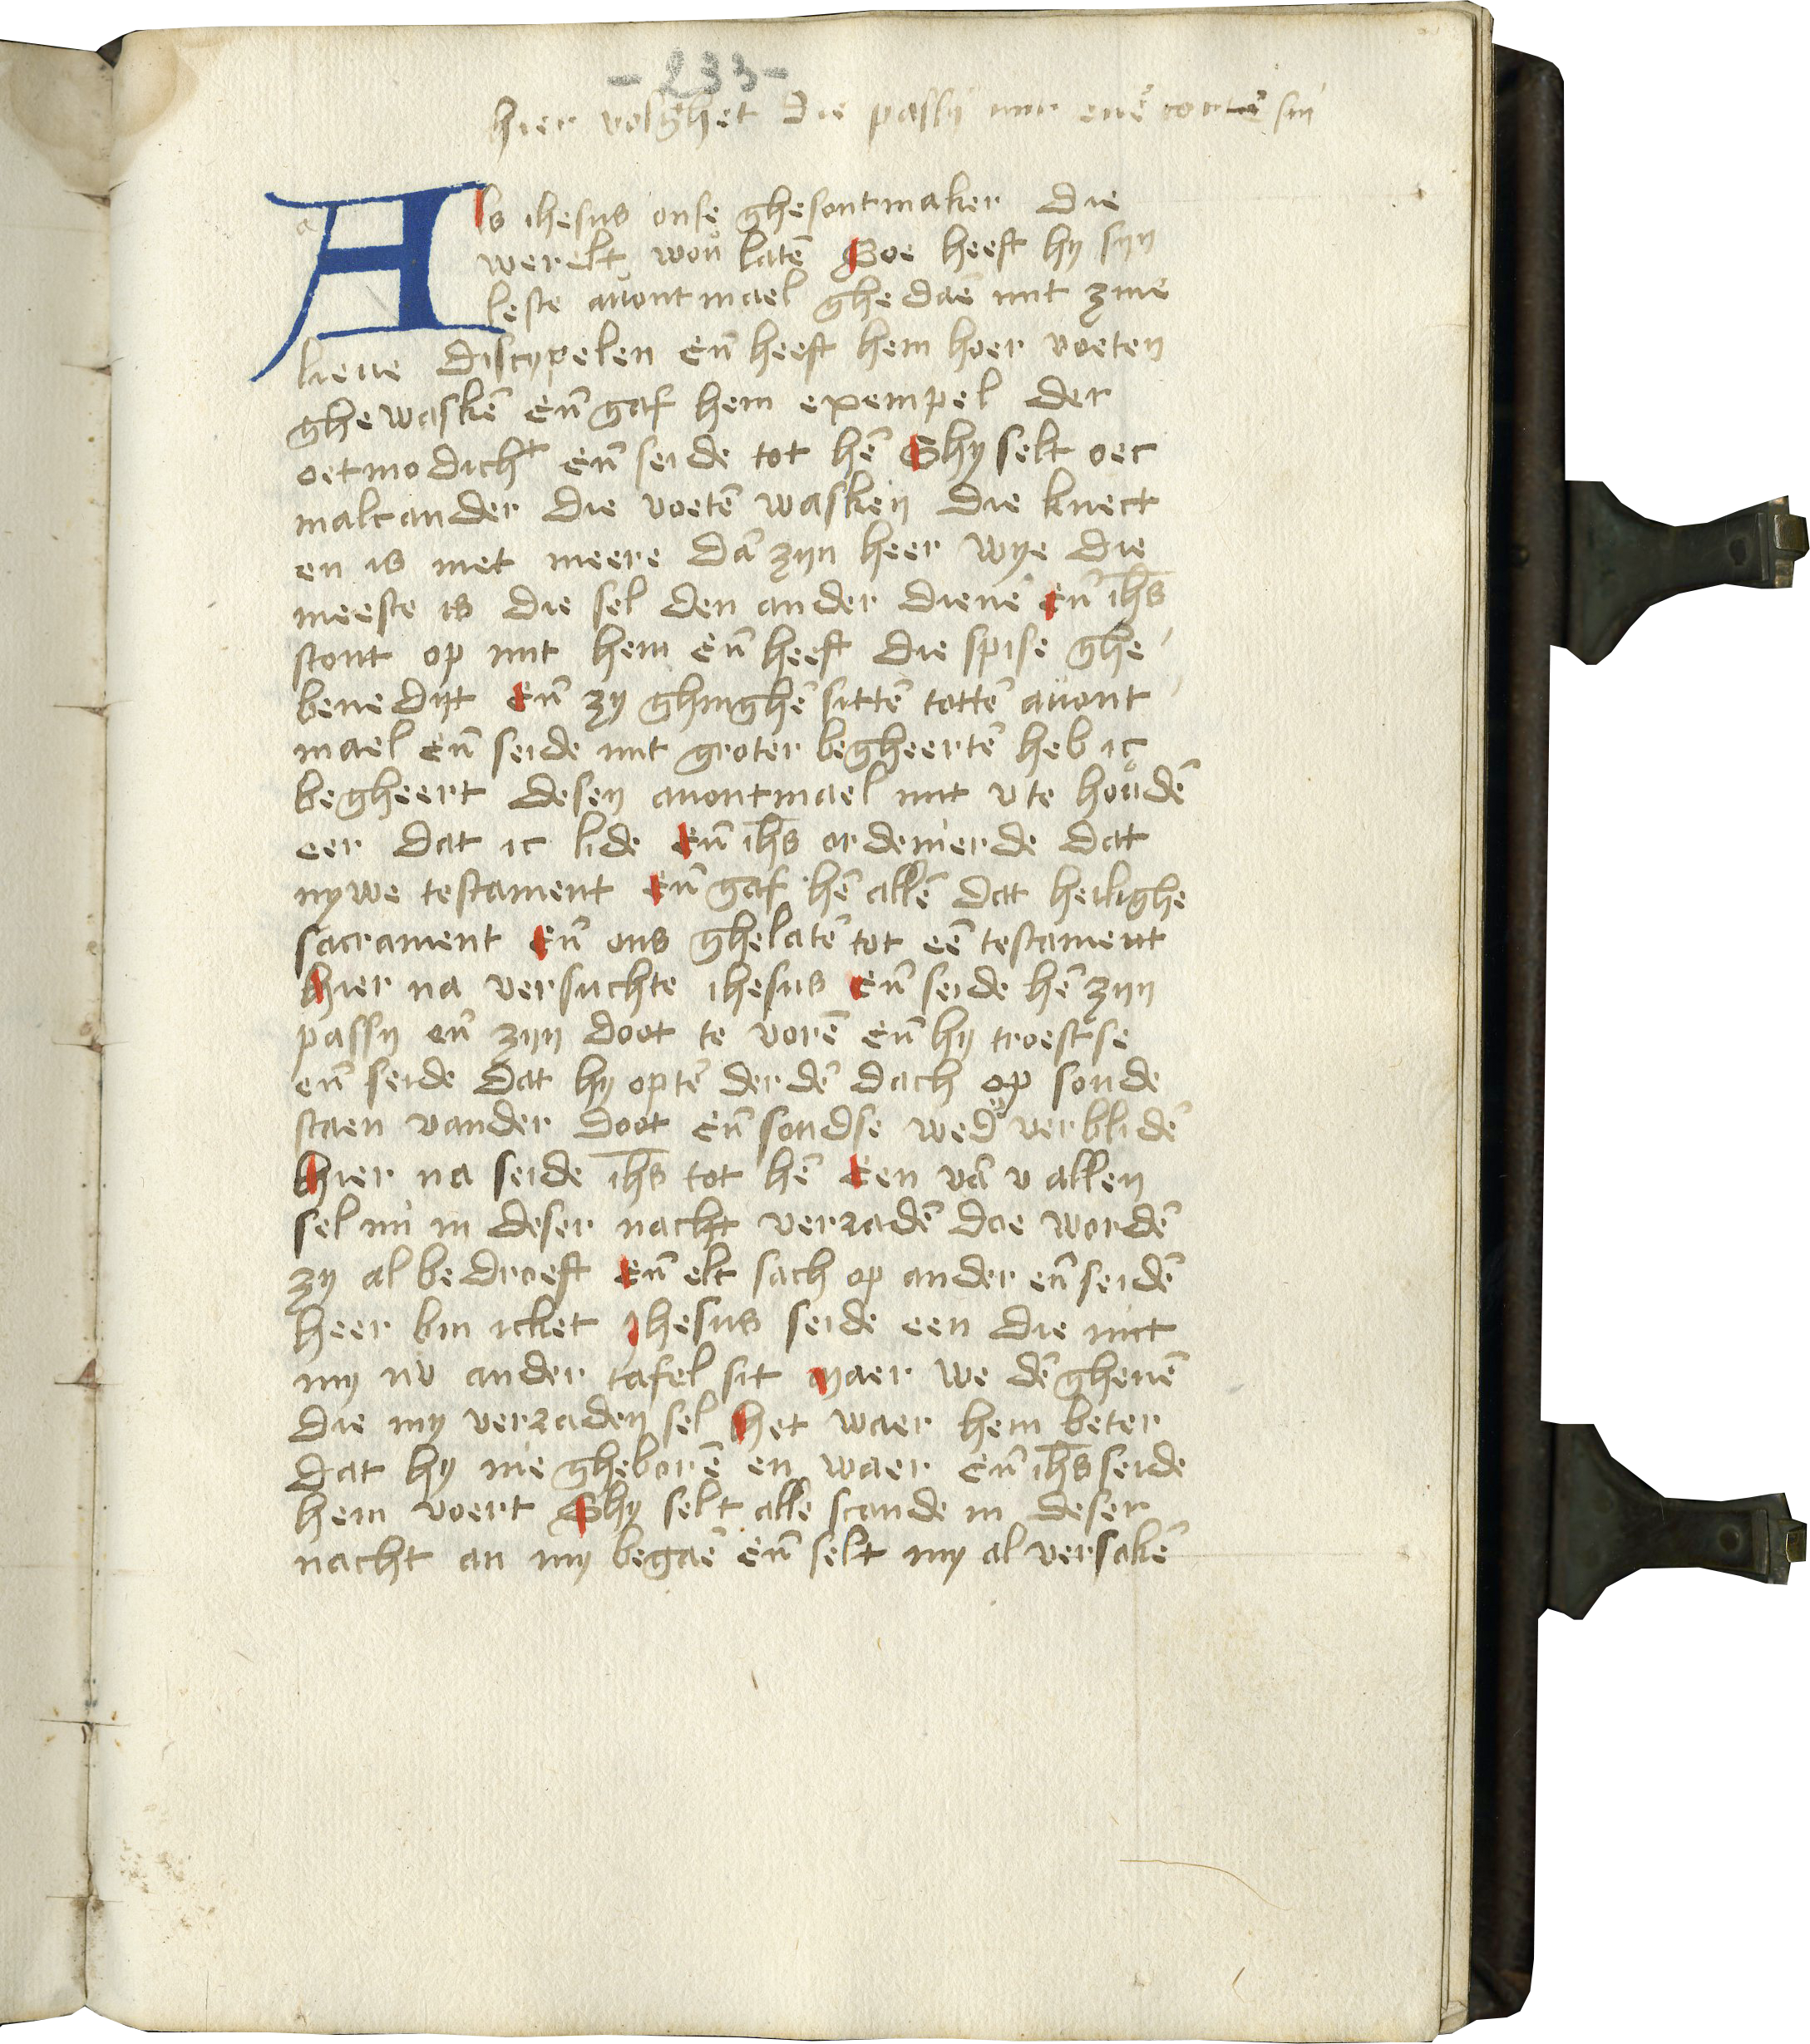 - 233 -
hier volghet die passy mit enē cortē sin
Als ihesus onse ghesontmaker die
werelt wou latē Soe heeft hy sijn
leste auont mael ghedaē mit zinē
lieue discypelen Eñ heeft hem hoer voeten
ghewaskē Eñ gaf hem exempel der
oetmodicht Eñ seide tot hē Ghy selt oec
malcander die voetē wasken die knect
en is niet meere dā zijn heer Wye die
meeste is die sel den ander dienē Eñ ihs
stont op mit hem Eñ heeft die spise ghe
benedijt Eñ zy ghinghē sittē tottē auont
mael Eñ seide mit groter begheertē heb ic
begheert desen auontmael mit v te houdē
eer dat ic lide Eñ ihs ordenierde dat
nywe testament Eñ gaf hē allē dat heilighe
sacrament Eñ ons ghelatē tot eē testament
hier na versuchte ihesus Eñ seide hē zijn
passy eñ zijn doot te vorē Eñ hy troestse
eñ seide dat hy optē derdē dach op soude
staen vander doot Eñ soudse wed verblidē
hier na seide ihs tot hē Een vā v allen
sel mi in deser nacht verradē doe wordē
zy al bedroeft Eñ elc sach op ander eñ seidē
heer bin icket Jhesus seide een die mit
my nv ander tafel sit Maer we dē ghenē
die my verraden sel het waer hem beter
dat hy nie gheborē en waer Eñ ihs seide
hem voert Ghy selt alle scande in deser
nacht an my begaē Eñ selt my al versakē